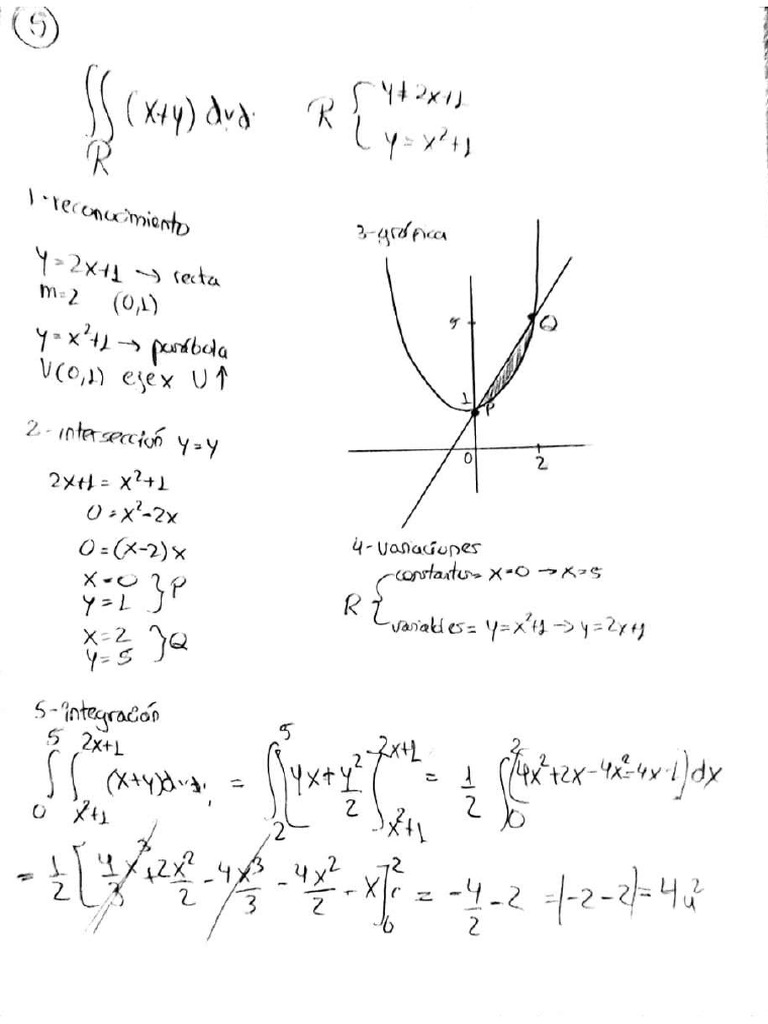 5
∬_R (x+y) dvd. R { y=2x+1
y=x²+1
1-reconocimiento
y=2x+1 → recta
m=2 (0,1)
y=x²+1 → parábola
V(0,1) eje x U↑
2-intersección y=y
2x+1=x²+1
0=x²-2x
0=(x-2)x
x=0
y=1 } P
x=2
y=5 } Q
3-gráfica
5 Q
1 P
0 2
4-variaciones
R { constantes= x=0 → x=5
variables= y=x²+1 → y=2x+1
5-integración
∫_0^5 ∫_{x²+1}^{2x+1} (x+y)dvd. = ∫_2^5 [yx+y²/2]_{x²+1}^{2x+1} = 1/2 ∫_0^2 [4x²+2x-4x²-4x-1]dx
= 1/2 [4/3 x³+2x²/2-4x³/3-4x²/2-x]_0^2 = -4/2-2 =|-2-2|=4u²